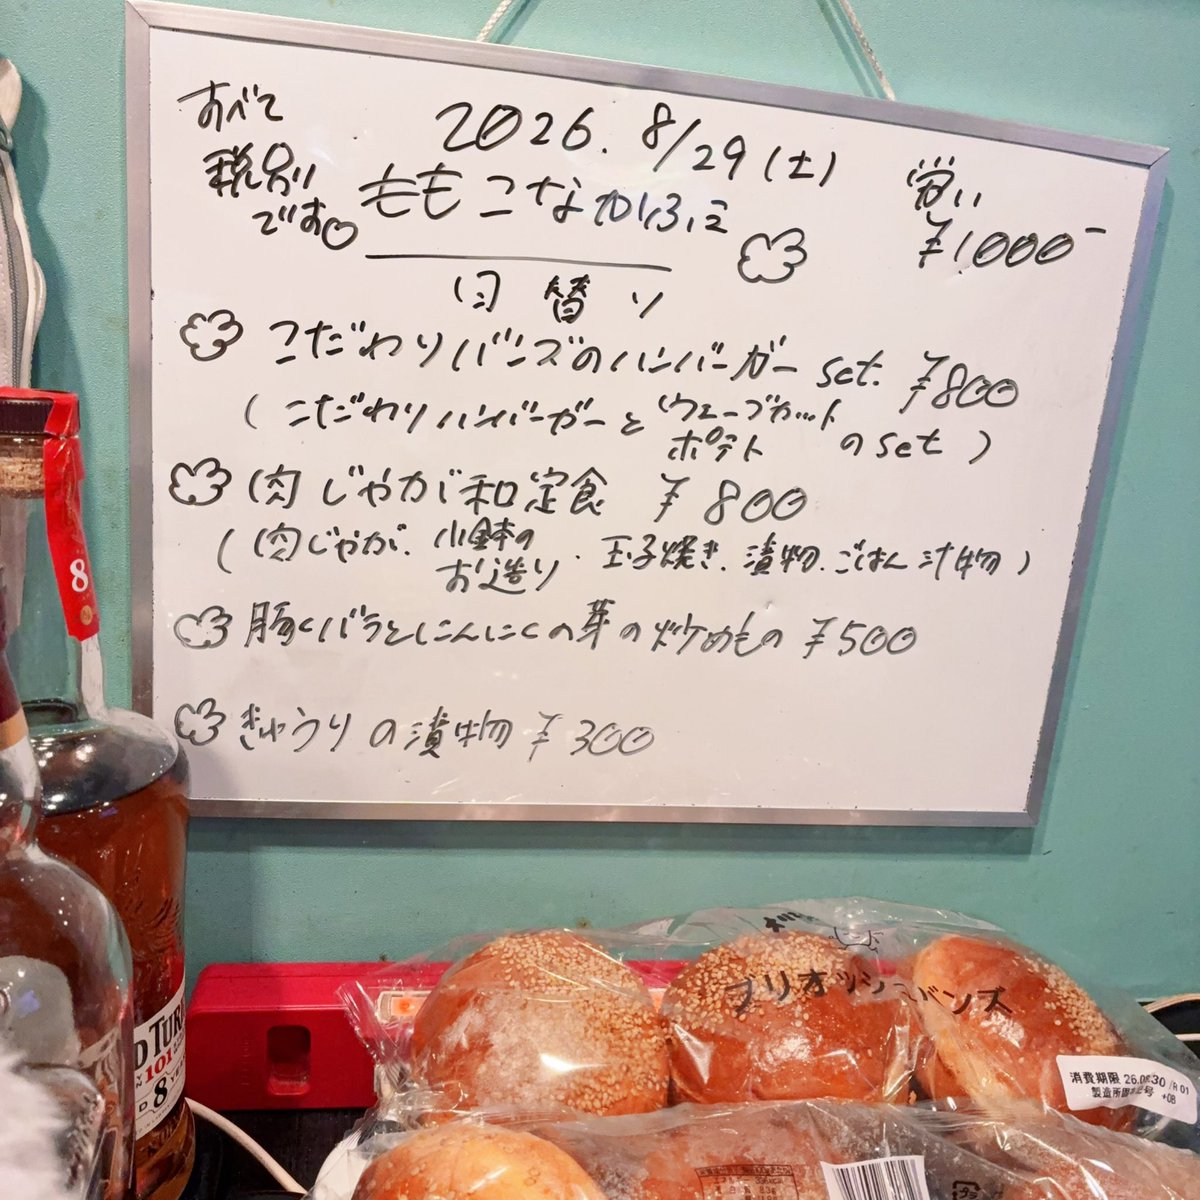 すべて
税別
です。
2026. 8/29(土)
ももこなかほに
日替り
¥1.000-
こだわりバンズのハンバーガー set. ¥800
(こだわりハンバーガーとウェーブカット
ポテト のset)
肉じゃが和定食 ¥800
(肉じゃが、小鉢の
お造り・玉子焼き、漬物、ごはん 汁物)
豚バラとにんにくの芽の炒めもの ¥500
きゅうりの漬物 ¥300
8
ブリオッシュバンズ
消費期限 26.08.30
+OB
D TUR
101
8